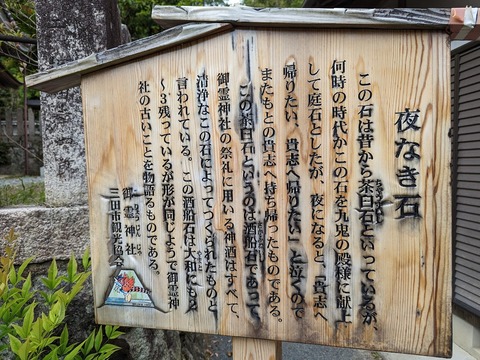 夜なき石
この石は昔から茶臼石といっているが
何時の時代かこの石を九鬼の殿様に献上
して庭石としたが、夜になると、「貴志へ
帰りたい、貴志へ帰りたい」と泣くので
またもとの貴志へ持ち帰ったものである。
この茶臼石というのは酒船石であって、
御霊神社の祭礼に用いる神酒はすべて、
清浄なこの石によってつくられたものと
言われている。この酒船石は大和にも2
〜3残っているが形が同じようで御霊神
社の古いことを物語るものである。
御霊神社
三田市観光協会